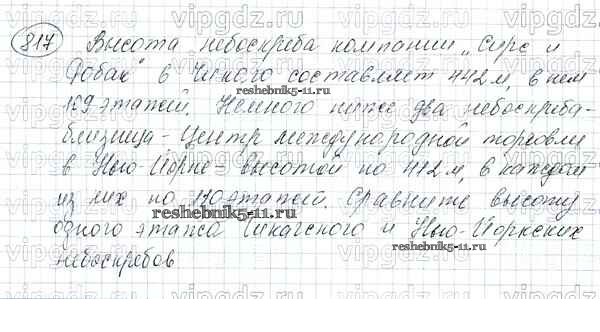 817 Высота небоскреба компании „Сирс и
Робак" в Чикаго составляет 442 м, в нем
109 этажей. Немного ниже два небоскреба-
близнеца - Центр международной торговли
в Нью-Йорке высотой по 412 м, в каждом
из них по 110 этажей. Сравните высоту
одного этажа Чикагского и Нью-Йоркских
небоскребов
reshebnik5-11.ru
reshebnik5-11.ru
reshebnik5-11.ru
vipgdz.com